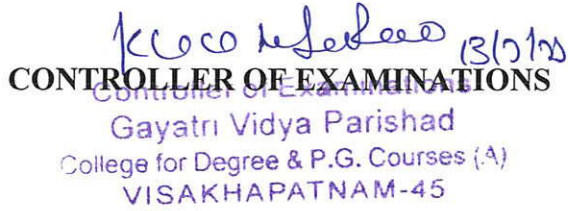 CONTROLLER OF EXAMINATIONS
Controller of Examinations
Gayatri Vidya Parishad
College for Degree & P.G. Courses (A)
VISAKHAPATNAM-45